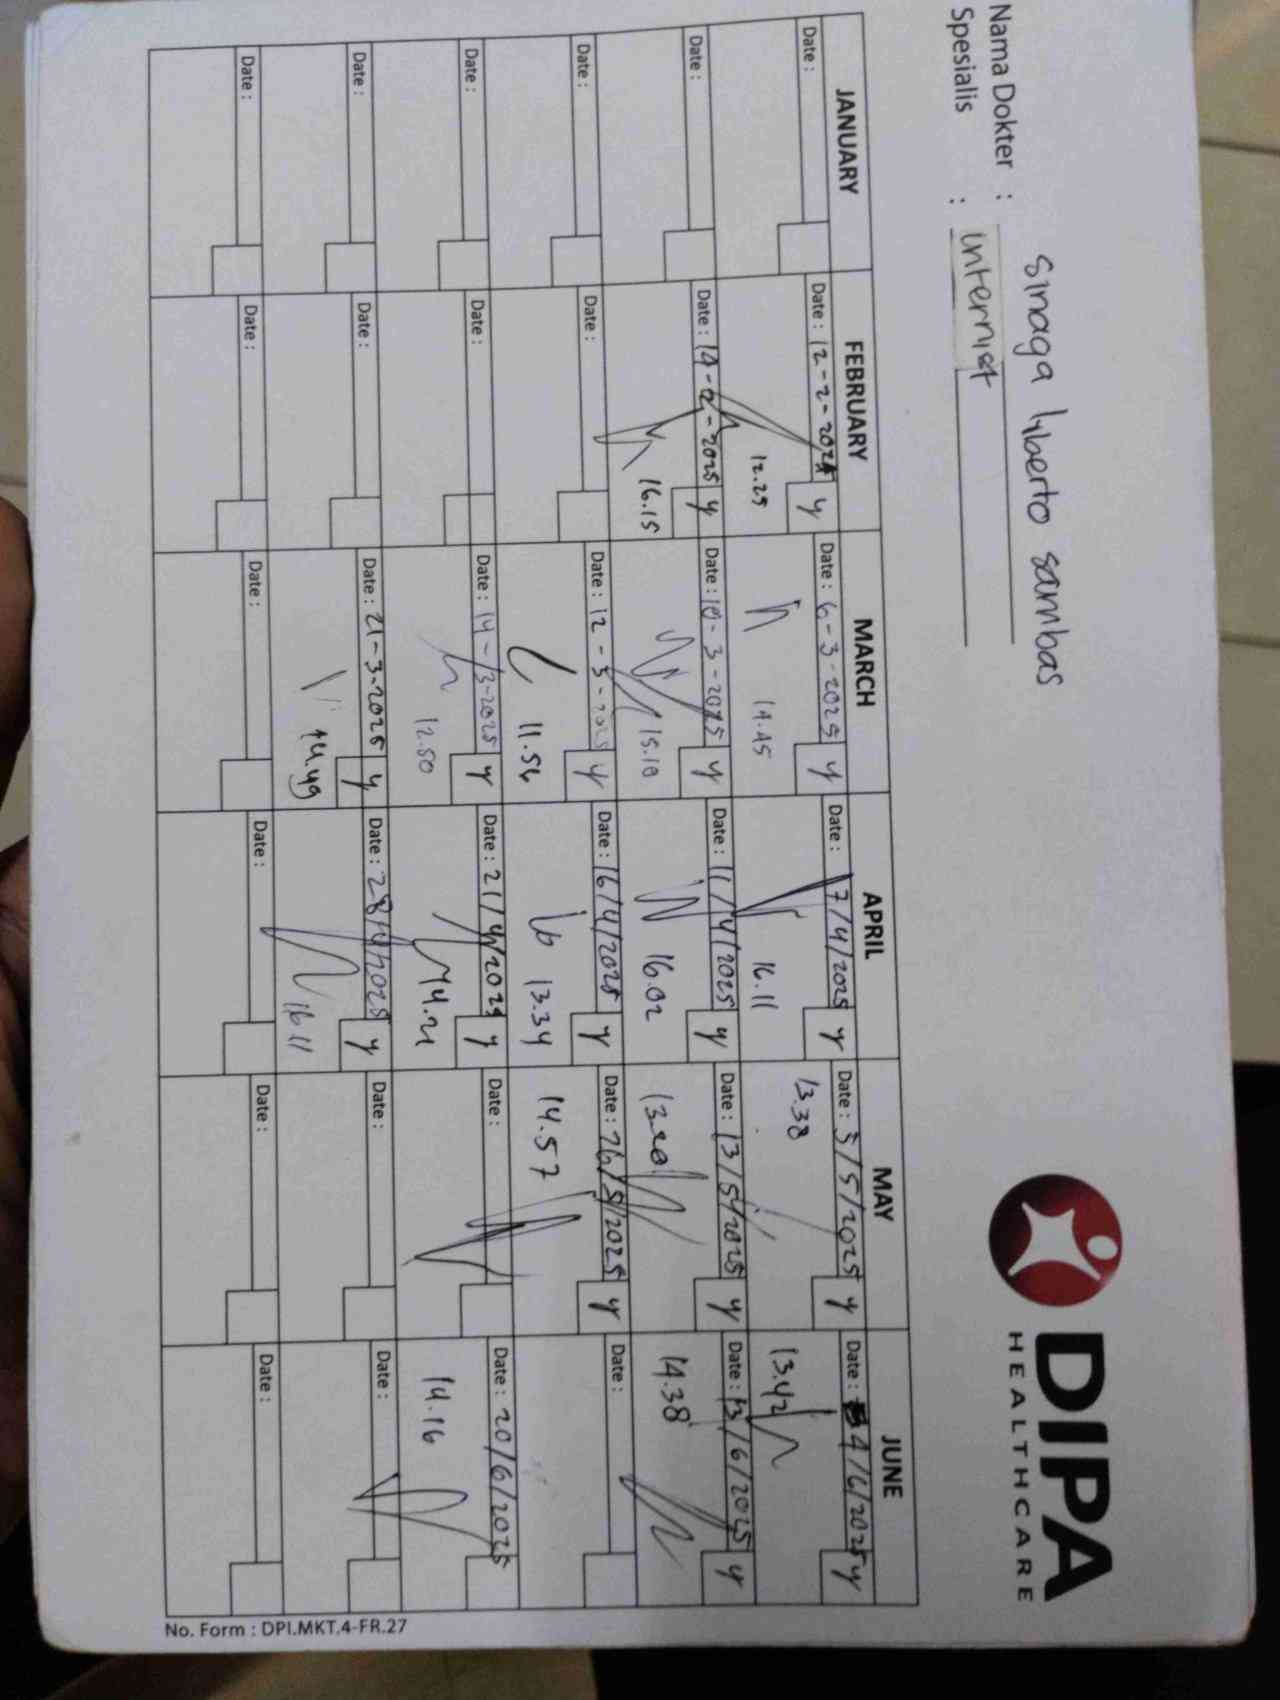 Nama Dokter : Sinaga liberto sambas
Spesialis : internist
DIPA
HEALTHCARE
JANUARY FEBRUARY MARCH APRIL MAY JUNE
Date : Date : 12-2-2025 y Date : 6-3-2025 y Date : 7/4/2025 y Date : 5/5/2025 y Date : 4/6/2025 y
12.25 14.45 16.11 13.38 13.42
Date : Date : 14-2-2025 y Date : 10-3-2025 y Date : 11/4/2025 y Date : 13/5/2025 y Date : 13/6/2025 y
16.15 15.10 16.02 13.20 14.38
Date : Date : Date : 12-3-2025 y Date : 16/4/2025 y Date : 26/5/2025 y Date :
11.56 13.34 14.57
Date : Date : Date : 14-3-2025 y Date : 21/4/2025 y Date : Date : 20/6/2025
12.50 14.21 14.16
Date : Date : Date : 21-3-2025 y Date : 28/4/2025 y Date : Date :
14.49 16 11
Date : Date : Date : Date : Date : Date :
No. Form : DPI.MKT.4-FR.27